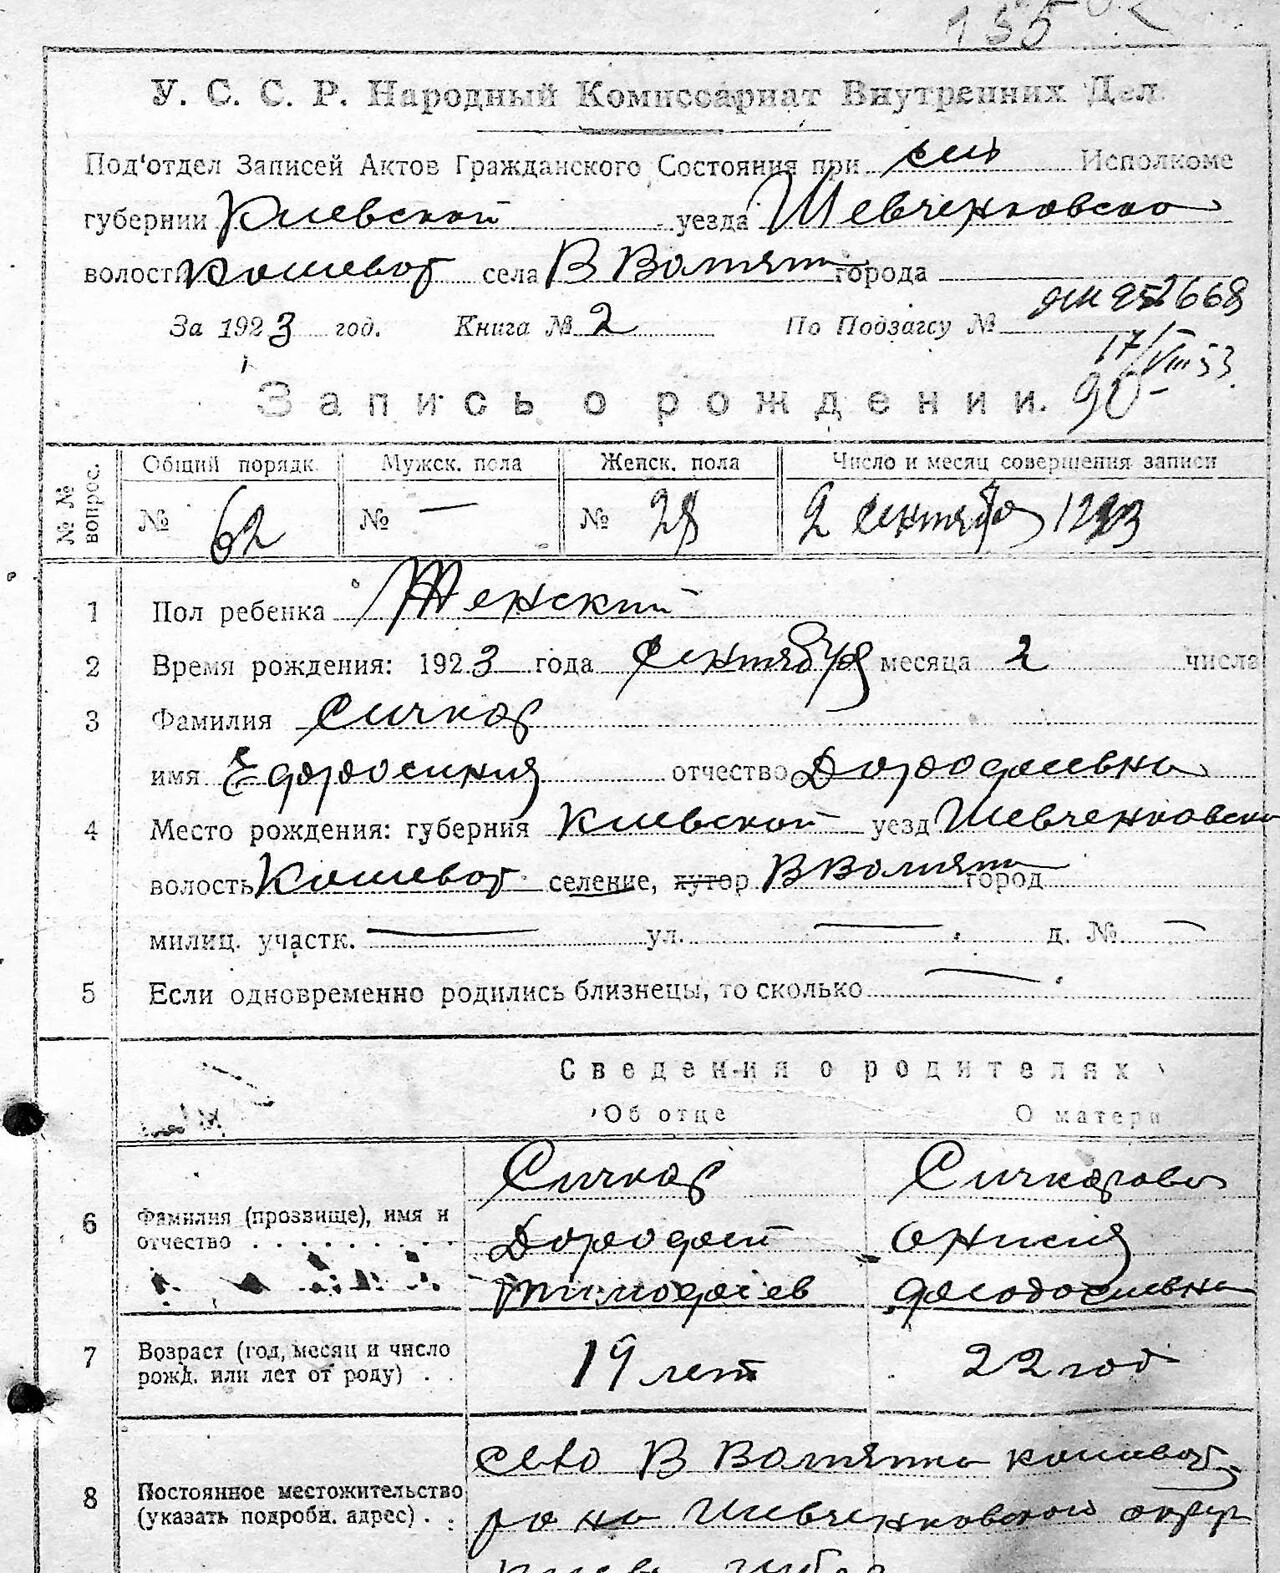 135
У. С. С. Р. Народный Комиссариат Внутренних Дел
Под'отдел Записей Актов Гражданского Состояния при сел Исполкоме
губернии Киевской уезда Шевченковско
волости села В города
За 1923 год. Книга № 2 По Подзагсу №
17/VIII 53
Запись о рождении. 90
№ № вопрос. Общий порядк. Мужск. пола Женск. пола Число и месяц совершения записи
№ 62 № — № 28 2 Сентября 1923
1 Пол ребенка Женский
2 Время рождения: 1923 года Сентября месяца 2 числа
3 Фамилия Сичкар
имя отчество Дорофеевна
4 Место рождения: губерния Киевской уезд Шевченковско
волость селение, хутор В город
милиц. участк. — ул. — д. № —
5 Если одновременно родились близнецы, то сколько —
Сведения о родителях
Об отце О матери
6 Фамилия (прозвище), имя и отчество . . . . . . . .
Сичкар Сичкарова
Дорофей Онисия
Тимофеев
7 Возраст (год, месяц и число рожд. или лет от роду) . . 19 лет 22 год
8 Постоянное местожительство (указать подробн. адрес) . .
село В
Шевченковского округ
Киев губер